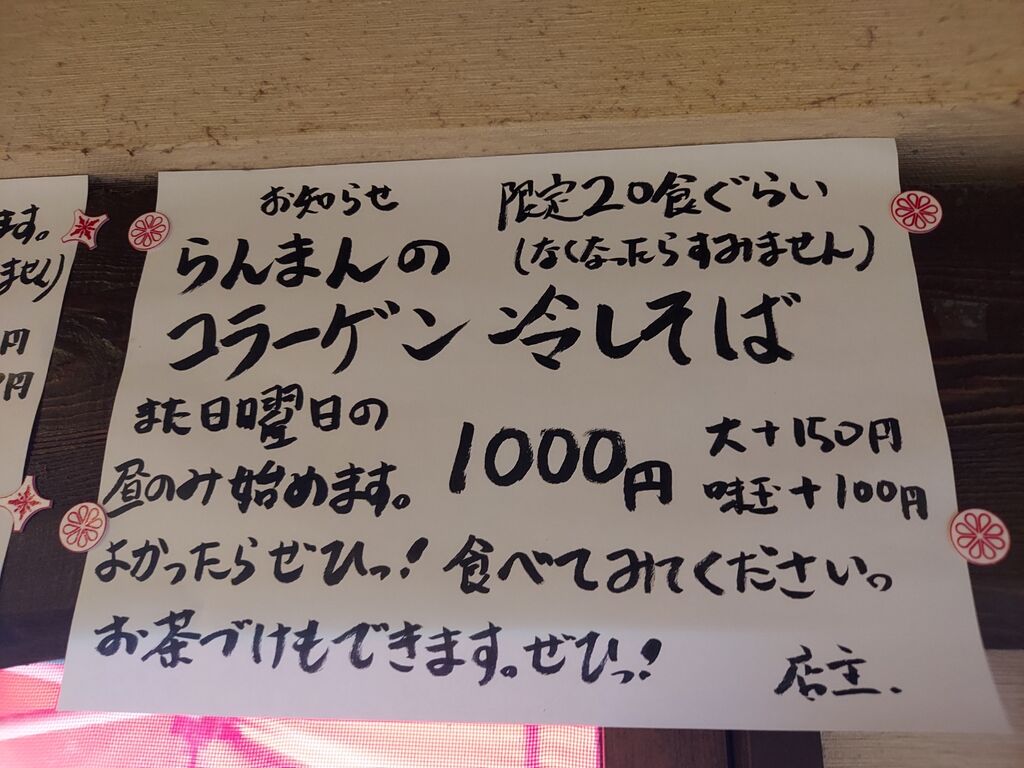 お知らせ
限定20食ぐらい
(なくなったらすみません)
らんまんの
コラーゲン 冷しそば
また日曜日の
昼のみ始めます。
1000円
大+150円
味玉+100円
よかったらぜひっ! 食べてみてください。
お茶づけもできます。ぜひっ!
店主.
ます。
ません)
円
円